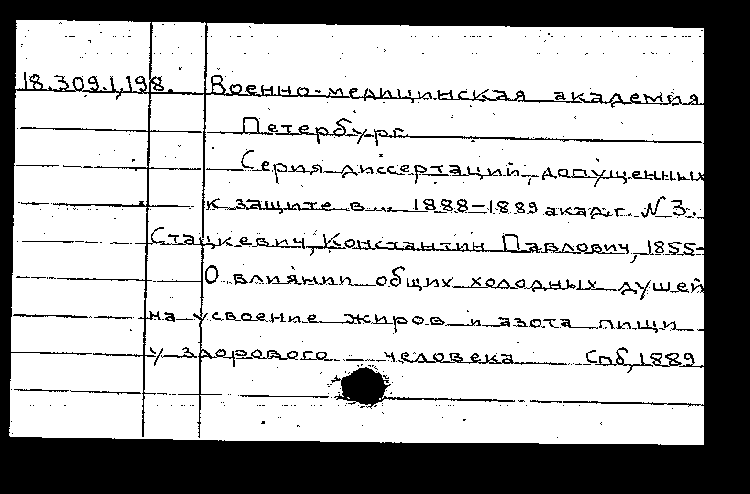 18.309.1,198. Военно-медицинская академия
Петербург.
Серия диссертаций, допущенных
к защите в... 1888-1889 акад.г. N 3.
Стацкевич, Константин Павлович, 1855-
О влиянии общих холодных душей
на усвоение жиров и азота пищи
у здорового человека Спб, 1889